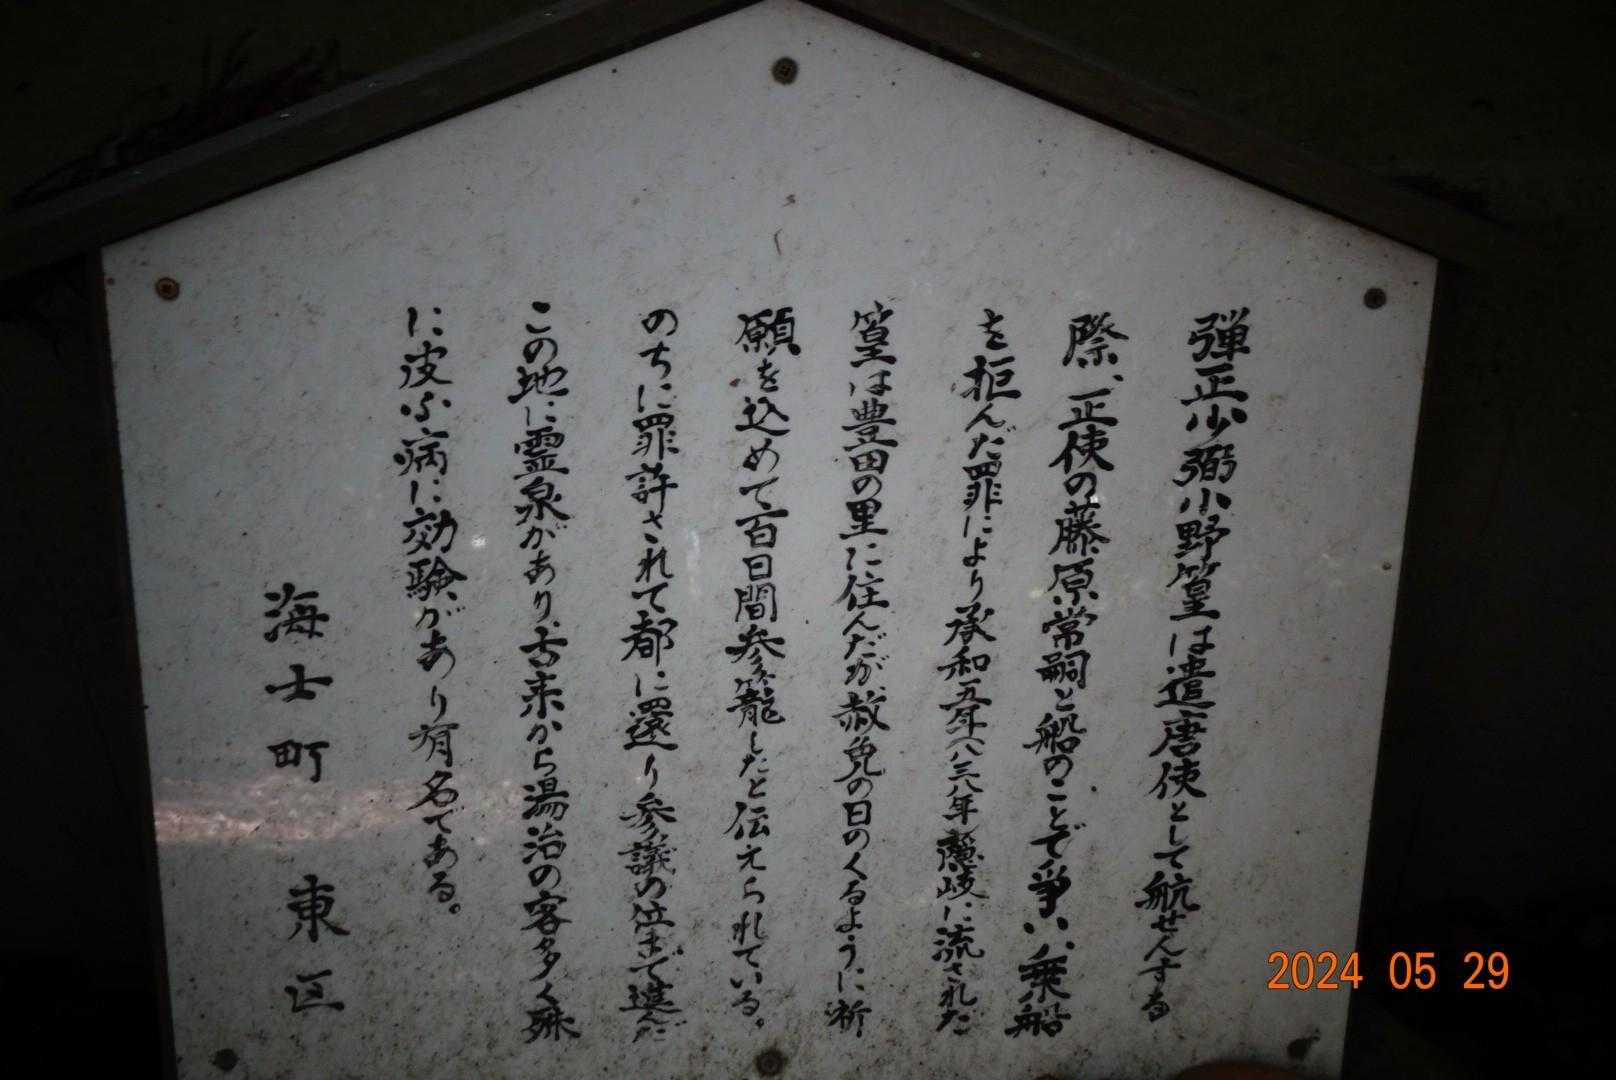 弾正少弼小野篁は遣唐使として航せんする
際、正使の藤原常嗣と船のことで争い、乗船
を拒んだ罪により承和五年(八三八年)隠岐に流された
篁は豊田の里に住んだが、赦免の日のくるように祈
願を込めて百日間参籠したと伝えられている。
のちに罪許されて都に還り参議の位まで進んだ
この地に霊泉があり、古来から湯治の客多く殊
に皮ふ病に効験があり有名である。
海士町 東区
2024 05 29